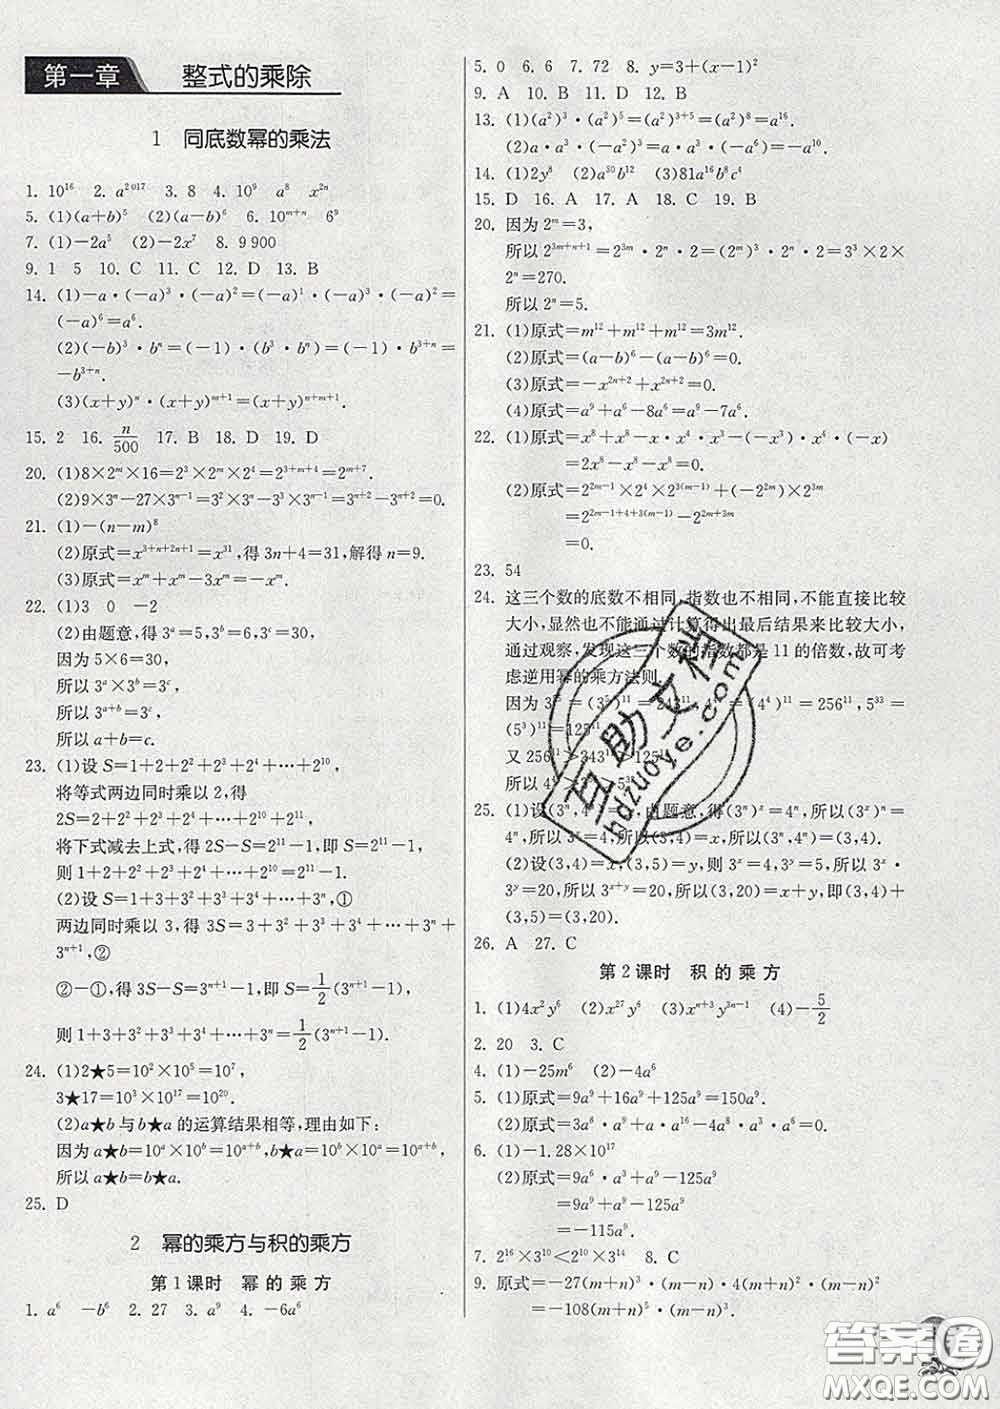 第一章 整式的乘除
1 同底数幂的乘法
1. 10¹⁶ 2. a²⁰¹⁷ 3. 8 4. 10⁹ a⁸ x²ⁿ
5. (1)(a+b)⁵ (2)(a−b)⁶ 6. 10ᵐ⁺ⁿ 6⁹
7. (1)−2a⁵ (2)−2x⁷ 8. 9 900
9. 1 5 10. C 11. C 12. D 13. B
14. (1)−a·(−a)³·(−a)²=(−a)¹·(−a)³·(−a)²=
(−a)⁶=a⁶.
(2)(−b)³·bⁿ=(−1)·(b³·bⁿ)=(−1)·b³⁺ⁿ=
−b³⁺ⁿ.
(3)(x+y)ⁿ·(x+y)ᵐ⁺¹=(x+y)ⁿ⁺ᵐ⁺¹.
15. 2 16. n/500 17. B 18. D 19. D
20. (1)8×2ᵐ×16=2³×2ᵐ×2⁴=2³⁺ᵐ⁺⁴=2ᵐ⁺⁷.
(2)9×3ⁿ−27×3ⁿ⁻¹=3²×3ⁿ−3³×3ⁿ⁻¹=3ⁿ⁺²−3ⁿ⁺²=0.
21. (1)−(n−m)⁸
(2)原式=x³⁺ⁿ⁺²ⁿ⁺¹=x³¹,得3n+4=31,解得n=9.
(3)原式=xᵐ+xᵐ−3xᵐ=−xᵐ.
22. (1)3 0 −2
(2)由题意,得3ᵃ=5,3ᵇ=6,3ᶜ=30,
因为5×6=30,
所以3ᵃ×3ᵇ=3ᶜ,
所以3ᵃ⁺ᵇ=3ᶜ,
所以a+b=c.
23. (1)设S=1+2+2²+2³+2⁴+…+2¹⁰,
将等式两边同时乘以2,得
2S=2+2²+2³+2⁴+…+2¹⁰+2¹¹,
将下式减去上式,得2S−S=2¹¹−1,即S=2¹¹−1,
则1+2+2²+2³+2⁴+…+2¹⁰=2¹¹−1.
(2)设S=1+3+3²+3³+3⁴+…+3ⁿ,①
两边同时乘以3,得3S=3+3²+3³+3⁴+…+3ⁿ+
3ⁿ⁺¹,②
②−①,得3S−S=3ⁿ⁺¹−1,即S=1/2(3ⁿ⁺¹−1),
则1+3+3²+3³+3⁴+…+3ⁿ=1/2(3ⁿ⁺¹−1).
24. (1)2★5=10²×10⁵=10⁷,
3★17=10³×10¹⁷=10²⁰.
(2)a★b与b★a的运算结果相等,理由如下:
因为a★b=10ᵃ×10ᵇ=10ᵃ⁺ᵇ,b★a=10ᵇ×10ᵃ=10ᵃ⁺ᵇ,
所以a★b=b★a.
25. D
2 幂的乘方与积的乘方
第1课时 幂的乘方
1. a⁶ −b⁶ 2. 27 3. a⁹ 4. −6a⁶
5. 0 6. 6 7. 72 8. y=3+(x−1)²
9. A 10. B 11. D 12. B
13. (1)(a²)³·(a²)⁵=(a²)³⁺⁵=(a²)⁸=a¹⁶.
(2)a·a³·(−a²)³=a·a³·(−a⁶)=−a¹⁰.
14. (1)2y⁸ (2)a⁵⁰b¹² (3)81a¹⁶b⁸c⁴
15. D 16. A 17. A 18. C 19. B
20. 因为2ᵐ=3,
所以2³ᵐ⁺ⁿ⁺¹=2³ᵐ·2ⁿ·2=(2ᵐ)³·2ⁿ·2=3³×2×
2ⁿ=270.
所以2ⁿ=5.
21. (1)原式=m¹²+m¹²+m¹²=3m¹².
(2)原式=(a−b)⁶−(a−b)⁶=0.
(3)原式=−x²ⁿ⁺²+x²ⁿ⁺²=0.
(4)原式=a⁹+a⁶−8a⁶=a⁹−7a⁶.
22. (1)原式=x⁸+x⁸−x·x⁴·x³−(−x³)·x⁴·(−x)
=2x⁸−x⁸−x⁸=0.
(2)原式=2²ᵐ⁻¹×2⁴×2³⁽ᵐ⁻¹⁾+(−2²ᵐ)×2³ᵐ
=2²ᵐ⁻¹⁺⁴⁺³⁽ᵐ⁻¹⁾−2²ᵐ⁺³ᵐ
=0.
23. 54
24. 这三个数的底数不相同,指数也不相同,不能直接比较
大小,显然也不能通过计算得出最后结果来比较大小,
通过观察,发现这三个数的指数都是11的倍数,故可考
虑逆用幂的乘方法则.
因为3⁵⁵=(3⁵)¹¹ =(4⁴)¹¹=256¹¹,5³³=
(5³)¹¹=125¹¹,
又256¹¹>243¹¹>125¹¹,
所以4 3 5³³.
25. (1)设(3ⁿ,4ⁿ)=x,由题意,得(3ⁿ)ˣ=4ⁿ,所以(3ˣ)ⁿ=
4ⁿ,所以3ˣ=4,所以(3,4)=x,所以(3ⁿ,4ⁿ)=(3,4).
(2)设(3,4)=x,(3,5)=y,则3ˣ=4,3ʸ=5,所以3ˣ·
3ʸ=20,所以3ˣ⁺ʸ=20,所以(3,20)=x+y,即(3,4)+
(3,5)=(3,20).
26. A 27. C
第2课时 积的乘方
1. (1)4x²y⁶ (2)x²⁷y⁶ (3)xⁿ⁺³y³ⁿ⁻¹ (4)−5/2
2. 20 3. C
4. (1)−25m⁶ (2)−4a⁶
5. (1)原式=9a⁹+16a⁹+125a⁹=150a⁹.
(2)原式=3a⁶·a⁹+a·a¹⁶−4a⁸·a⁶·a³=0.
6. (1)−1.28×10¹⁷
(2)原式=9a⁶·a³+a⁹−125a⁹
=9a⁹+a⁹−125a⁹
=−115a⁹.
7. 2¹⁶×3¹⁰<2¹⁰×3¹⁴ 8. C
9. 原式=−27(m+n)³·(m−n)·4(m+n)²·(m−n)²
=−108(m+n)⁵·(m−n)³.
互助文档
hdzuoye.com
答案圈
MXQE.COM